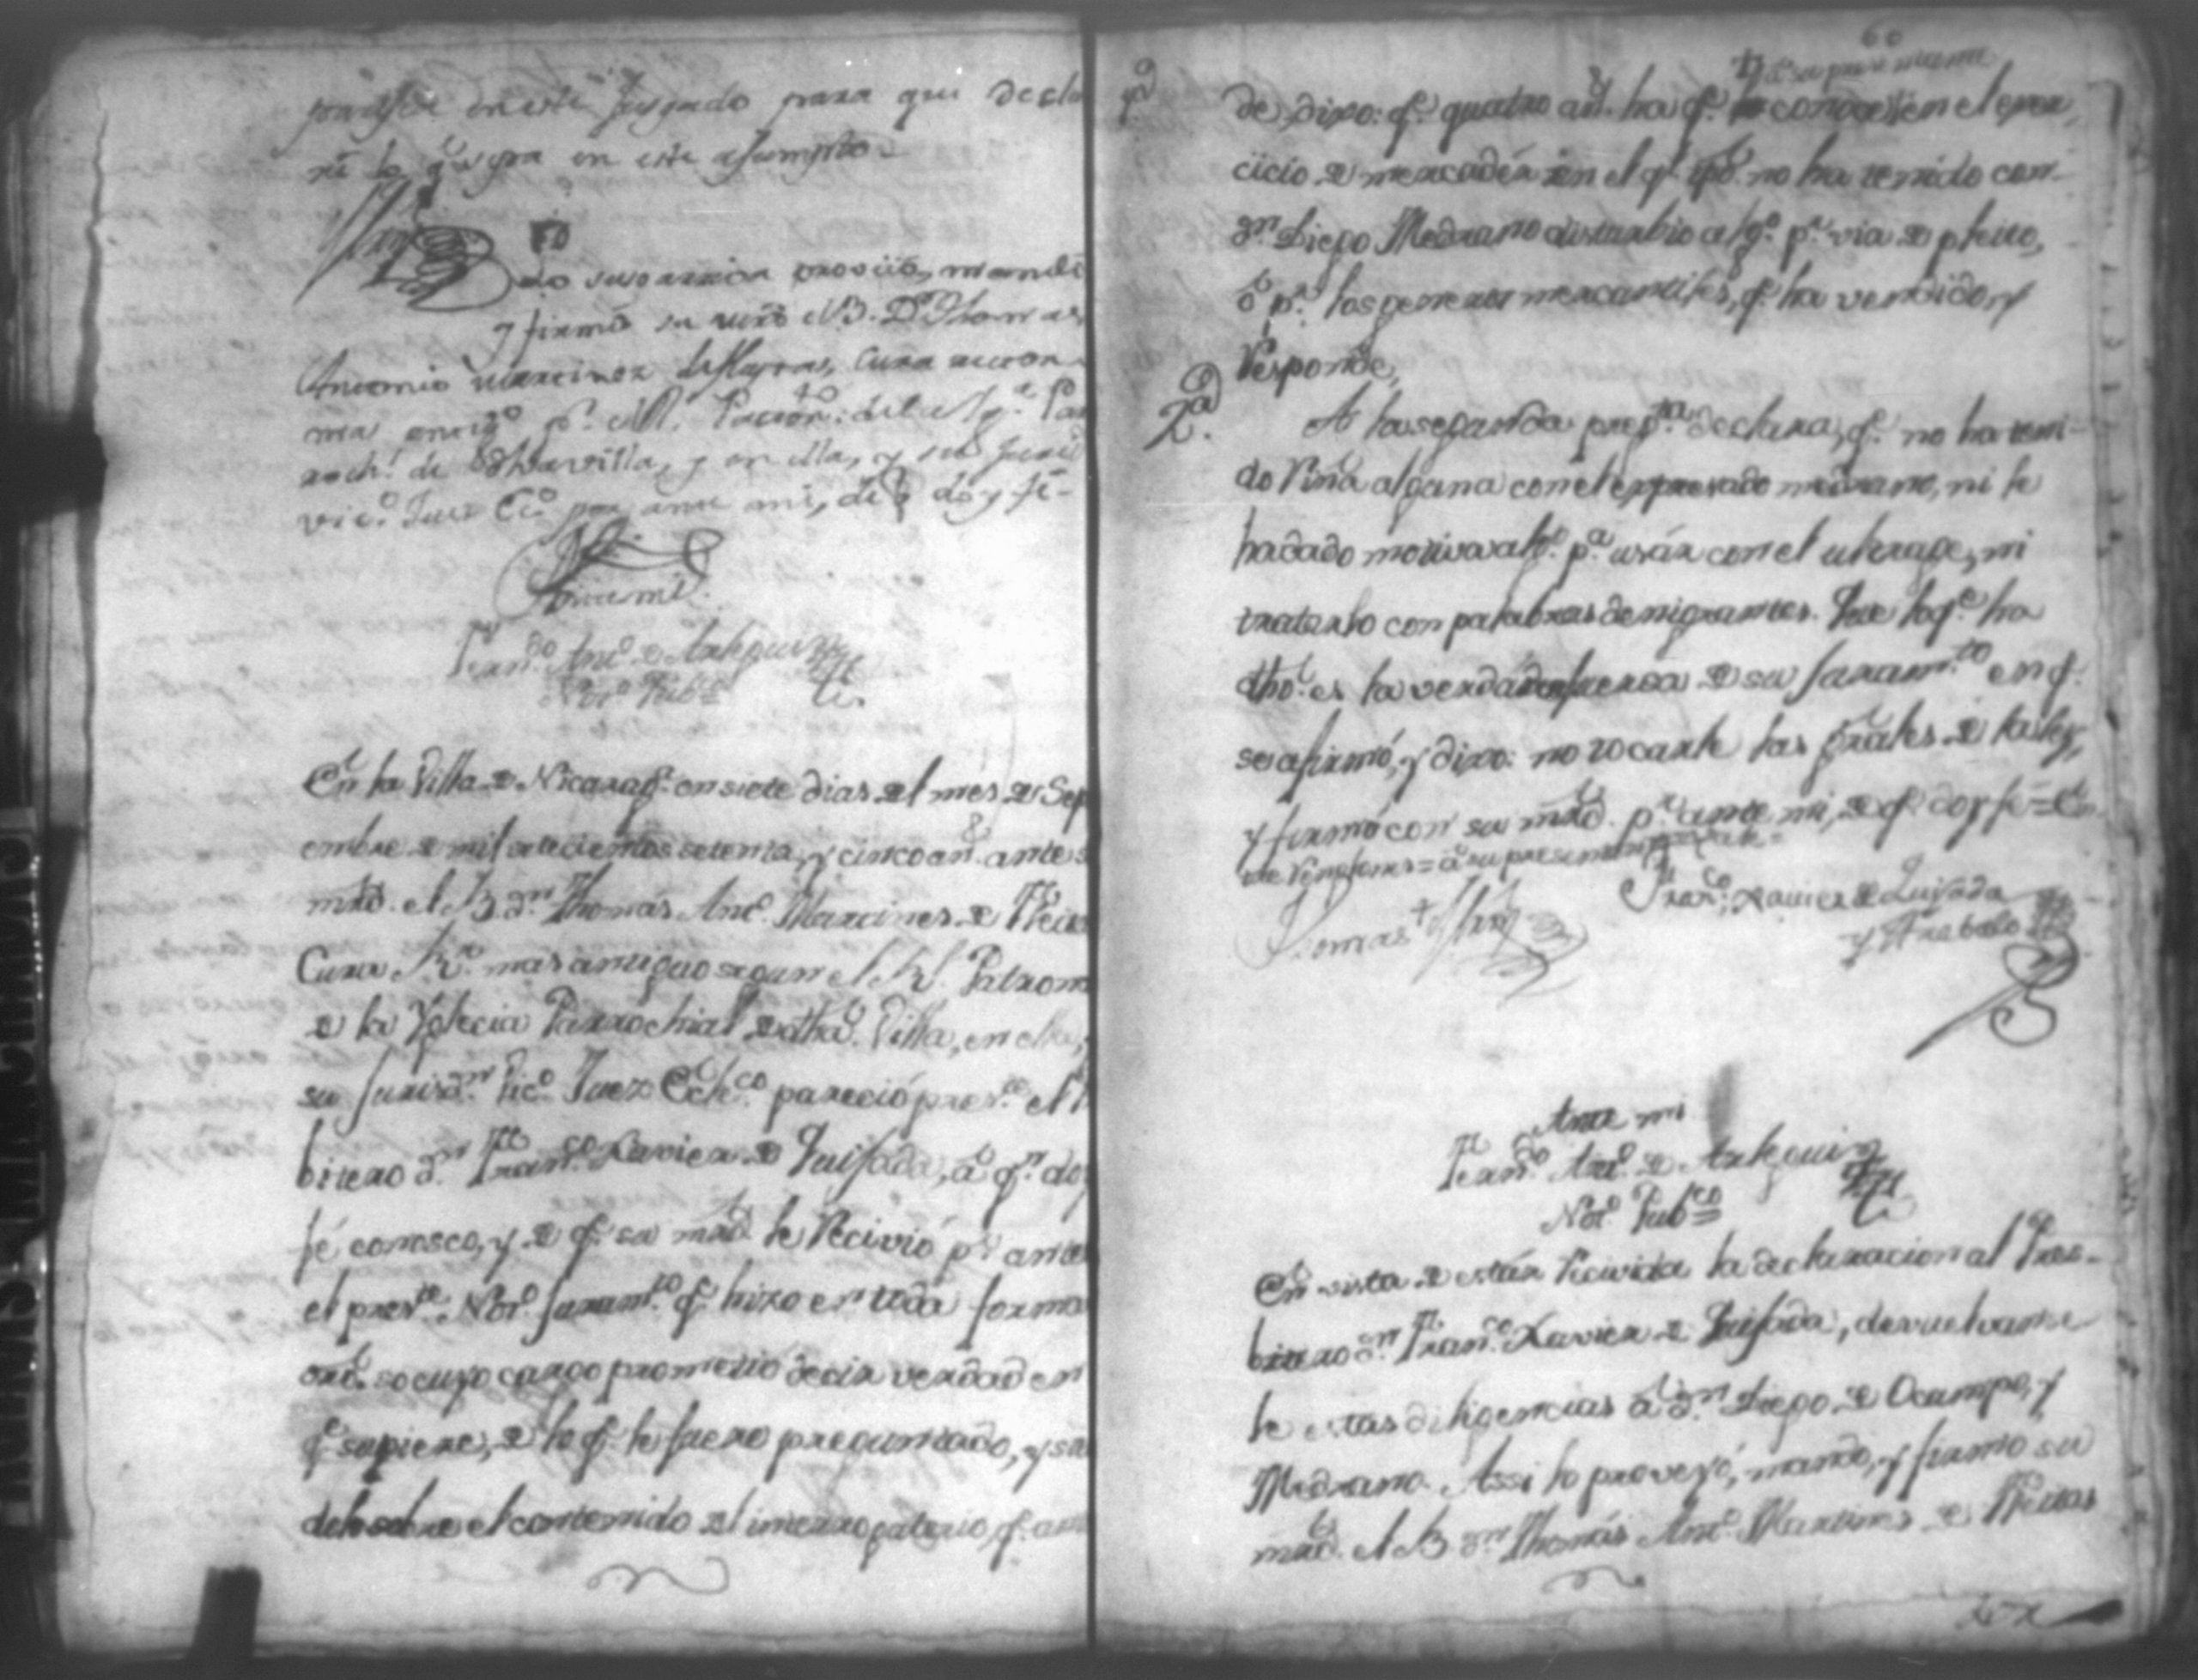 en este Jusgado para que decla
re lo q.e sepa en este asumpto.
Mrñz
Lo suso arriva proveió, mandó
y firmó su mrd el B. Dn. Thomas
Antonio Martinez de Heyras, Cura
mas antig.o p.r el Rl. Patron.to de la Ygª. Pa
rroch.l de esta villa, y en ella, y su Juris
vic.o Juez Ec.o por ante mi, de q doy fé-
Ante mi.
Fern.do Ant.o de Arlegui
Not.o Pub.co
En la Villa de Nicarag.a en siete dias del mes de Sep
embre de mil setecientos setenta, y cinco an.s ante s
mrd. el B. d.n Thomás Ant.o Martines de Heiras
Cura R.r mas antiguo segun el Rl. Patrona
de la Yglecia Parrochial de dthã. Villa, en ella, y
su Jurisd.n Vic.o Juez Ecle.co pareció pres.te el
bitero d.n Fran.co Xavier de Quisada, á q.n doy
fé conosco, y de q.e su mrd. le Recivió p.r ante
el pres.te Not.o Juram.to q.e hizo en toda forma
so cuyo cargo prometió decir verdad en
q.e supiere, de lo q.e le fuere preguntado, y
el contenido del interrogatorio q.e
60
â su presencia
de, dixo: q.e quatro añ.s ha q.e conoce en el exer
cicio de mercadér en el q.e no ha tenido con
d.n Diego Medrano disturbio alg.o p.r via de pleito,
ô p.r los generos mercantiles, q.e ha vendido y
Responde,
2.a A la segunda preg.ta declara, q.e no ha teni-
do Riña alguna con el expresado medrano, ni le
ha dado motivo alg.o p.a usár con el ulterage, ni
tratarlo con palabras denigrantes. Que lo q.e ha
dho. es la verdad en fuerza de su Juram.to en q.e
se afirmó, y dixo: no tocarle las grãles de la ley,
y firmó con su mrd. p.r ante mi, de q.e doy fe = En
tre Renglones = â su presencia = vale =
Tomas Mrñz
Fran.co Xavier de Quisada
y Arebalo
Ante mi
Fern.do Ant.o de Arlegui
Not.o Pub.co
En vista de estár Recivida la declaracion al Pres-
bitero d.n Fran.co Xavier de Quisada, devuelvanse
le estas diligencias â d.n Diego de Ocampo, y
Medrano. Assi lo proveyó, mandó, y firmó su
mrd. el B. d.n Thomás Ant.o Martines de Heiras